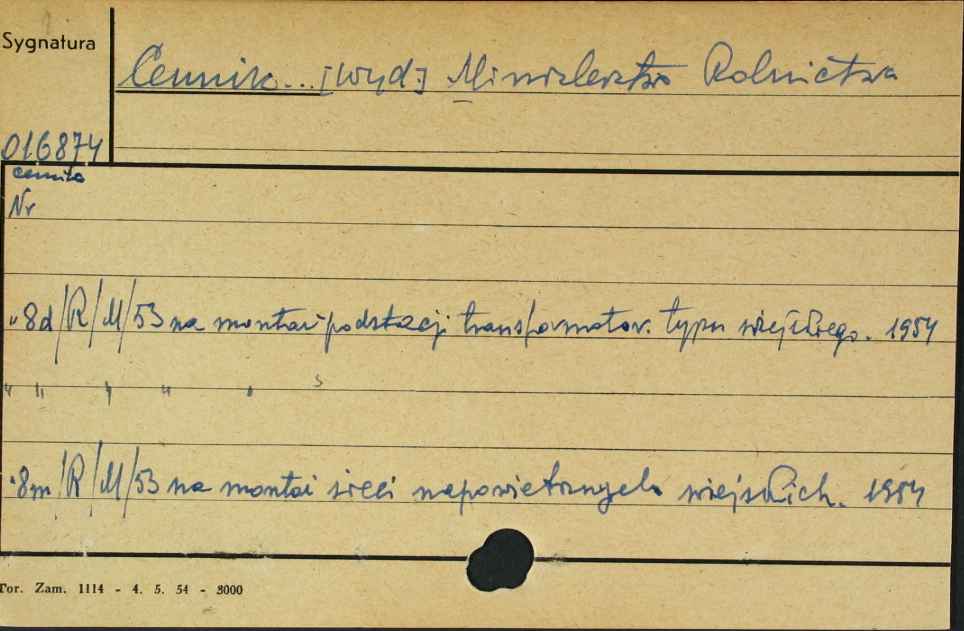 Sygnatura
Cennik... [wyd:] Ministerstwo Rolnictwa
016874
cennika
Nr
"8d/R/M/53 na montaż podstacji transformator. typu wiejskiego. 1954
" " " " " "
"8m/R/M/53 na montaż sieci napowietrznych wiejskich. 1954
Tor. Zam. 1114 - 4. 5. 54 - 3000